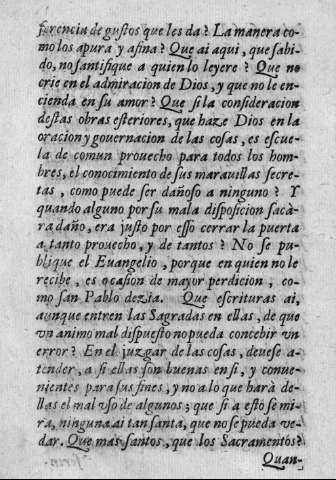 ferencia de gustos que les da? La manera co-
mo los apura y afina? Que ai aqui, que sabi-
do, no santifique a quien lo leyere? Que no
crie en el admiracion de Dios, y que no le en-
cienda en su amor? Que si la consideracion
destas obras esteriores, que haze Dios en la
oracion y governacion de las cosas, es escue-
la de comun prouecho para todos los hom-
bres, el conocimiento de sus marauillas secre-
tas, como puede ser dañoso a ninguno? Y
quando alguno por su mala disposicion sacà-
ra daño, era justo por esso cerrar la puerta
a tanto prouecho, y de tantos? No se pu-
blique el Euangelio, porque en quien no le
recibe, es ocasion de mayor perdicion, co-
mo san Pablo dezia. Que escrituras ai,
aunque entren las Sagradas en ellas, de que
vn animo mal dispuesto no pueda concebir vn
error? En el juzgar de las cosas, deuese a-
tender, a si ellas son buenas en si, y conue-
nientes para sus fines, y no a lo que harà de-
llas el mal vso de algunos; que si a esto se mi-
ra, ninguna ai tan santa, que no se pueda ve-
dar. Que mas santos, que los Sacramentos?
Quan-